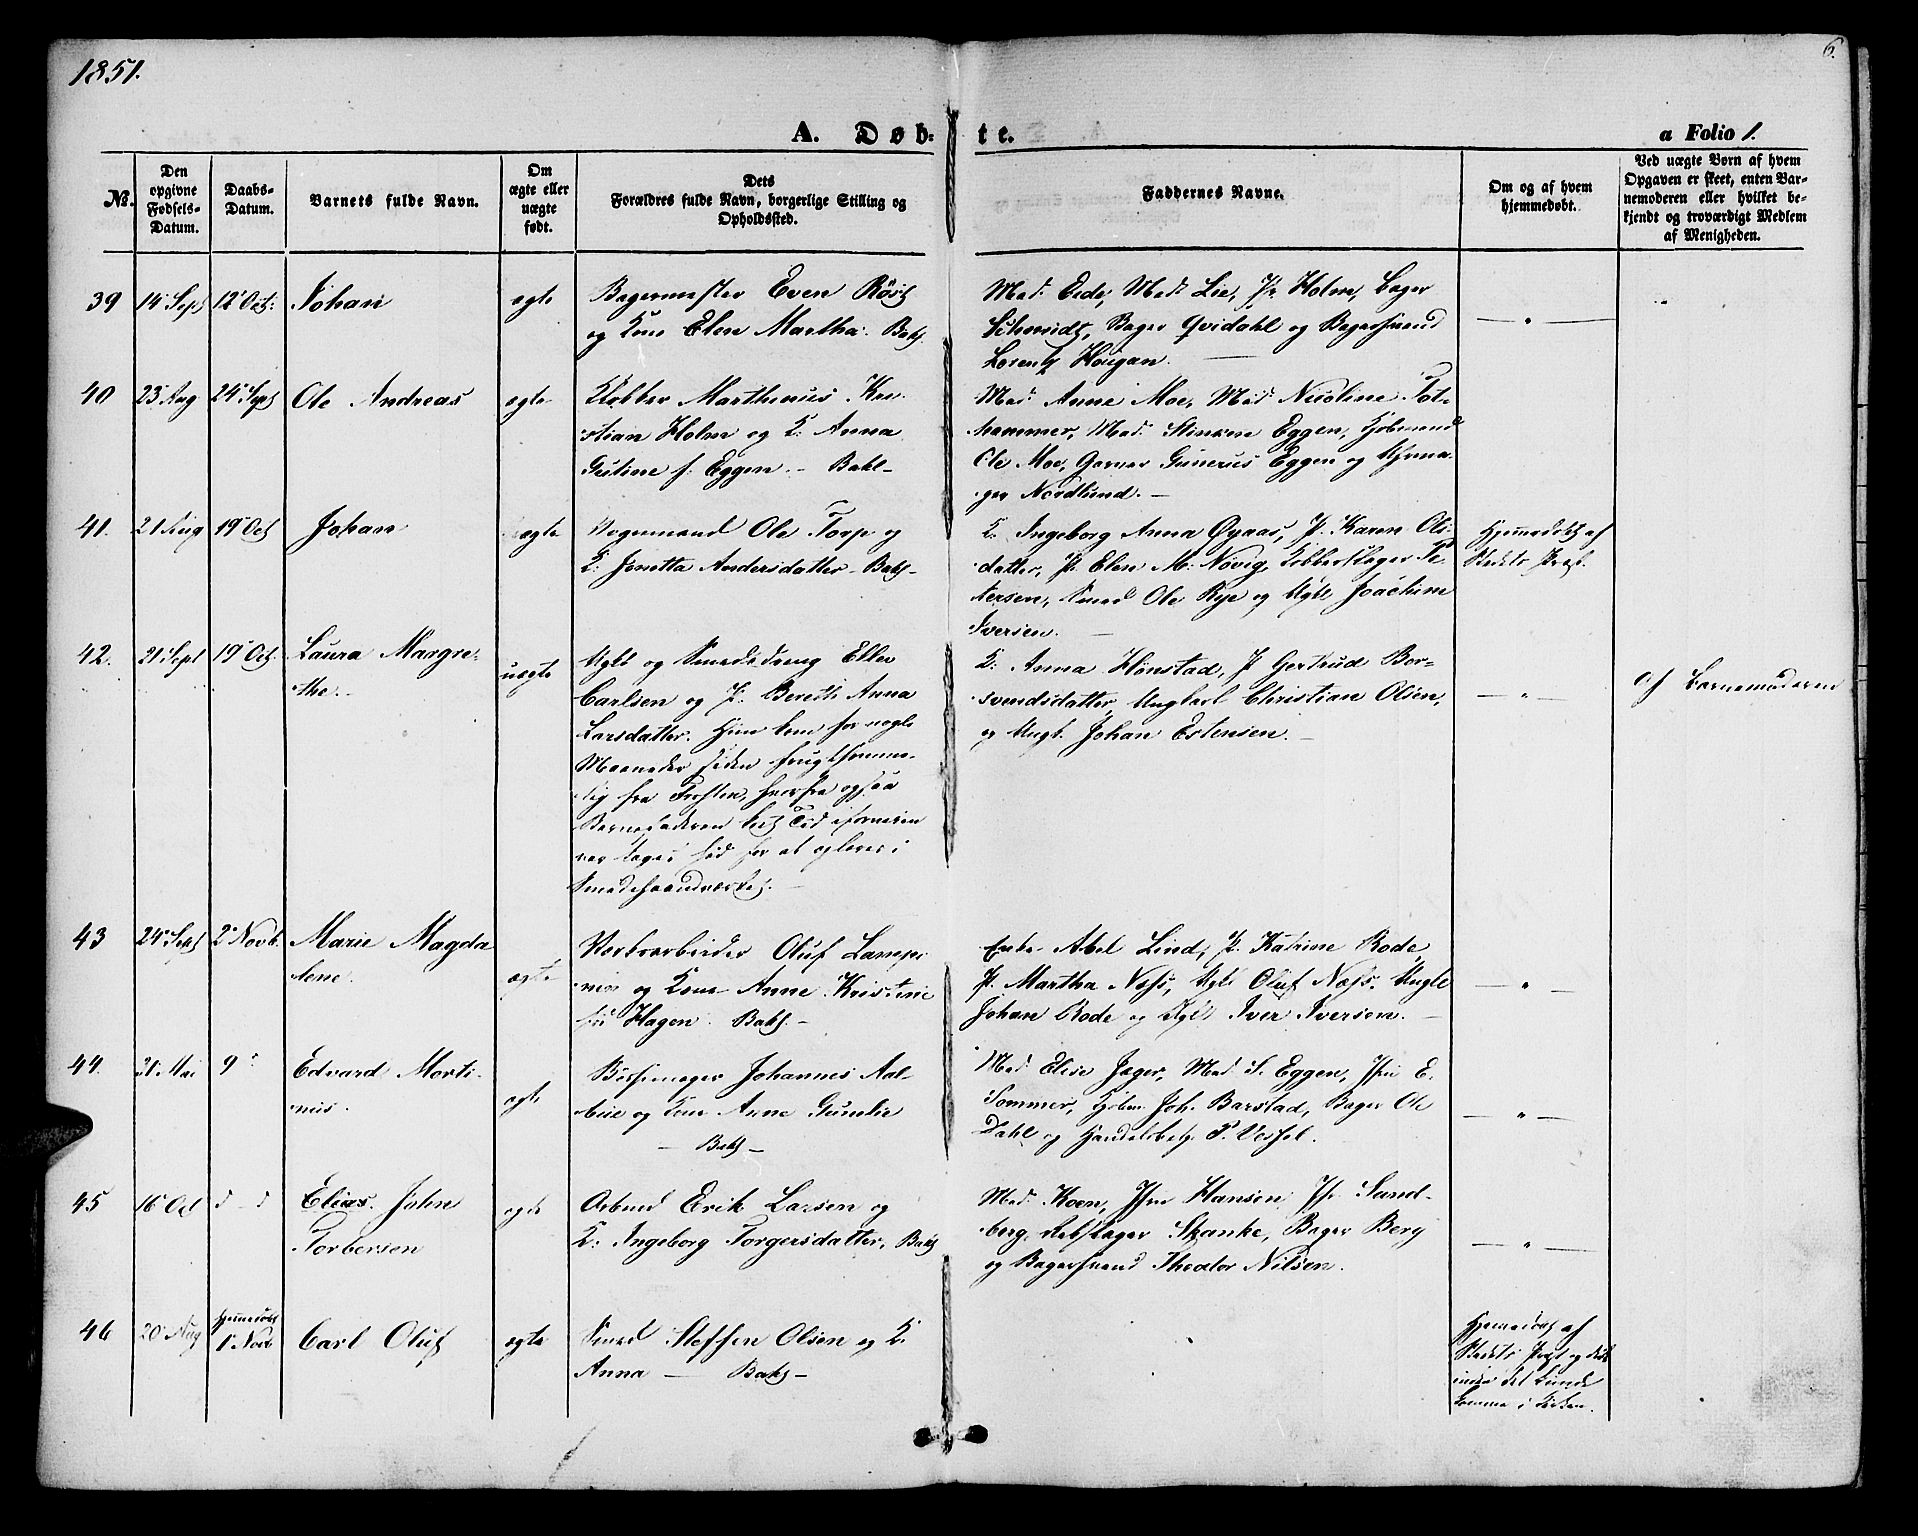 1851.
6.
A. Døb-
te.
a Folio 1.
No.
Den opgivne Fødsels-Datum.
Daabs-Datum.
Barnets fulde Navn.
Om ægte eller uægte født.
Dets Forældres fulde Navn, borgerlige Stilling og Opholdssted.
Faddernes Navne.
Om og af hvem hjemmedøbt.
Ved uægte Børn af hvem Opgaven er skeet, enten Barnemoderen eller hvilket bekjendt og troværdigt Medlem af Menigheden.
39 14 Sept 12 Oct: Johan ægte
Bagermester Even Röst
og Kone Elen Martha. Bakl.
Mad: Eide, Mad: Lie, Jfr Holm, Bager
Schmidt, Bager Qvidahl og Bagersvend
Lorentz Hougan.
40 23 Aug 24 Sept Ole Andreas ægte
Klokker Marthinus Kri-
stian Holm og K. Anna
Guline f. Eggen. - Bakl-
Mad: Anne Moe, Mad. Nicoline
hammer, Mad: Eggen, Kjøbmand
Ole Moe, Garver Gunerus Eggen og
Nordlund. -
41. 21 Aug 19 Oct Johan ægte
Vognmand Ole Torp og
K. Jonetta Andersdatter - Bakl-
K. Ingeborg Anna Øyaas, P. Karen Ols-
datter, P. Elen M. Növig, Kobberslager Pe-
tersen, Smed Ole Rye og Ugkl Joachim
Iversen. -
Hjemmedøbt af
Stedets Præst.
42. 21 Sept 19 Oct. Laura Margre-
the. - uægte
Ugkl og Smededreng Eller
Carlsen og P. Bereth Anna
Larsdatter. Hun kom for nogle
Maaneder siden frugtsomme-
lig fra Frosten, hvorfra ogsaa
Barnefaderen kort Tid iforveien
var taget hid for at oplæres i
Smedehaandværket. -
K. Anna Hönstad, P. Gertrud Bor-
svendsdatter, Ungkarl Christian Olsen,
og Ungk. Johan Estensen. -
- " -
af Barnemoderen
43 24 Sept 2 Novb. Marie Magda
lene. ægte
Værksarbeider Oluf Lampi
nus og Kone Anne Kristine
Hagen. Bakl. -
Enke Abel Lind, P. Katrine Rode,
P. Martha Næss, Ugkl Oluf Næss, Ungkl
Johan Rode og Ugkl Iver Iversen. -
- " -
44. 31 Mai 9 " Edvard Morti-
nus. ægte
Bøssemager Johannes Aal-
bue og Kone Anne Gunelie
- Bakl -
Mad Elise Jæger, Mad S. Eggen, Jfru E.
Sommer, Kjøbm. Joh. Barstad, Bager Ole
Dahl og Handelsbetj. P. Vessel.
- " -
45 16 Oct d - d Elias John
Torbersen ægte
Arbmd Erik Larsen og
K. Ingeborg Torgersdatter, Bakl
Mad. Koen, Jfru Hansen, Jfr Sand-
berg, Rebslager Skanke, Bager Berg
og Bagersvend Theodor Nilsen.
- " -
46 20 Aug Hjemmedøbt
1 Novb Carl Oluf ægte
Smed Steffen Olsen og K.
Anna - Bakl -
Hjemmedøbt af
Stedets Præst og døde
inden det kunde
komme i Kirken.